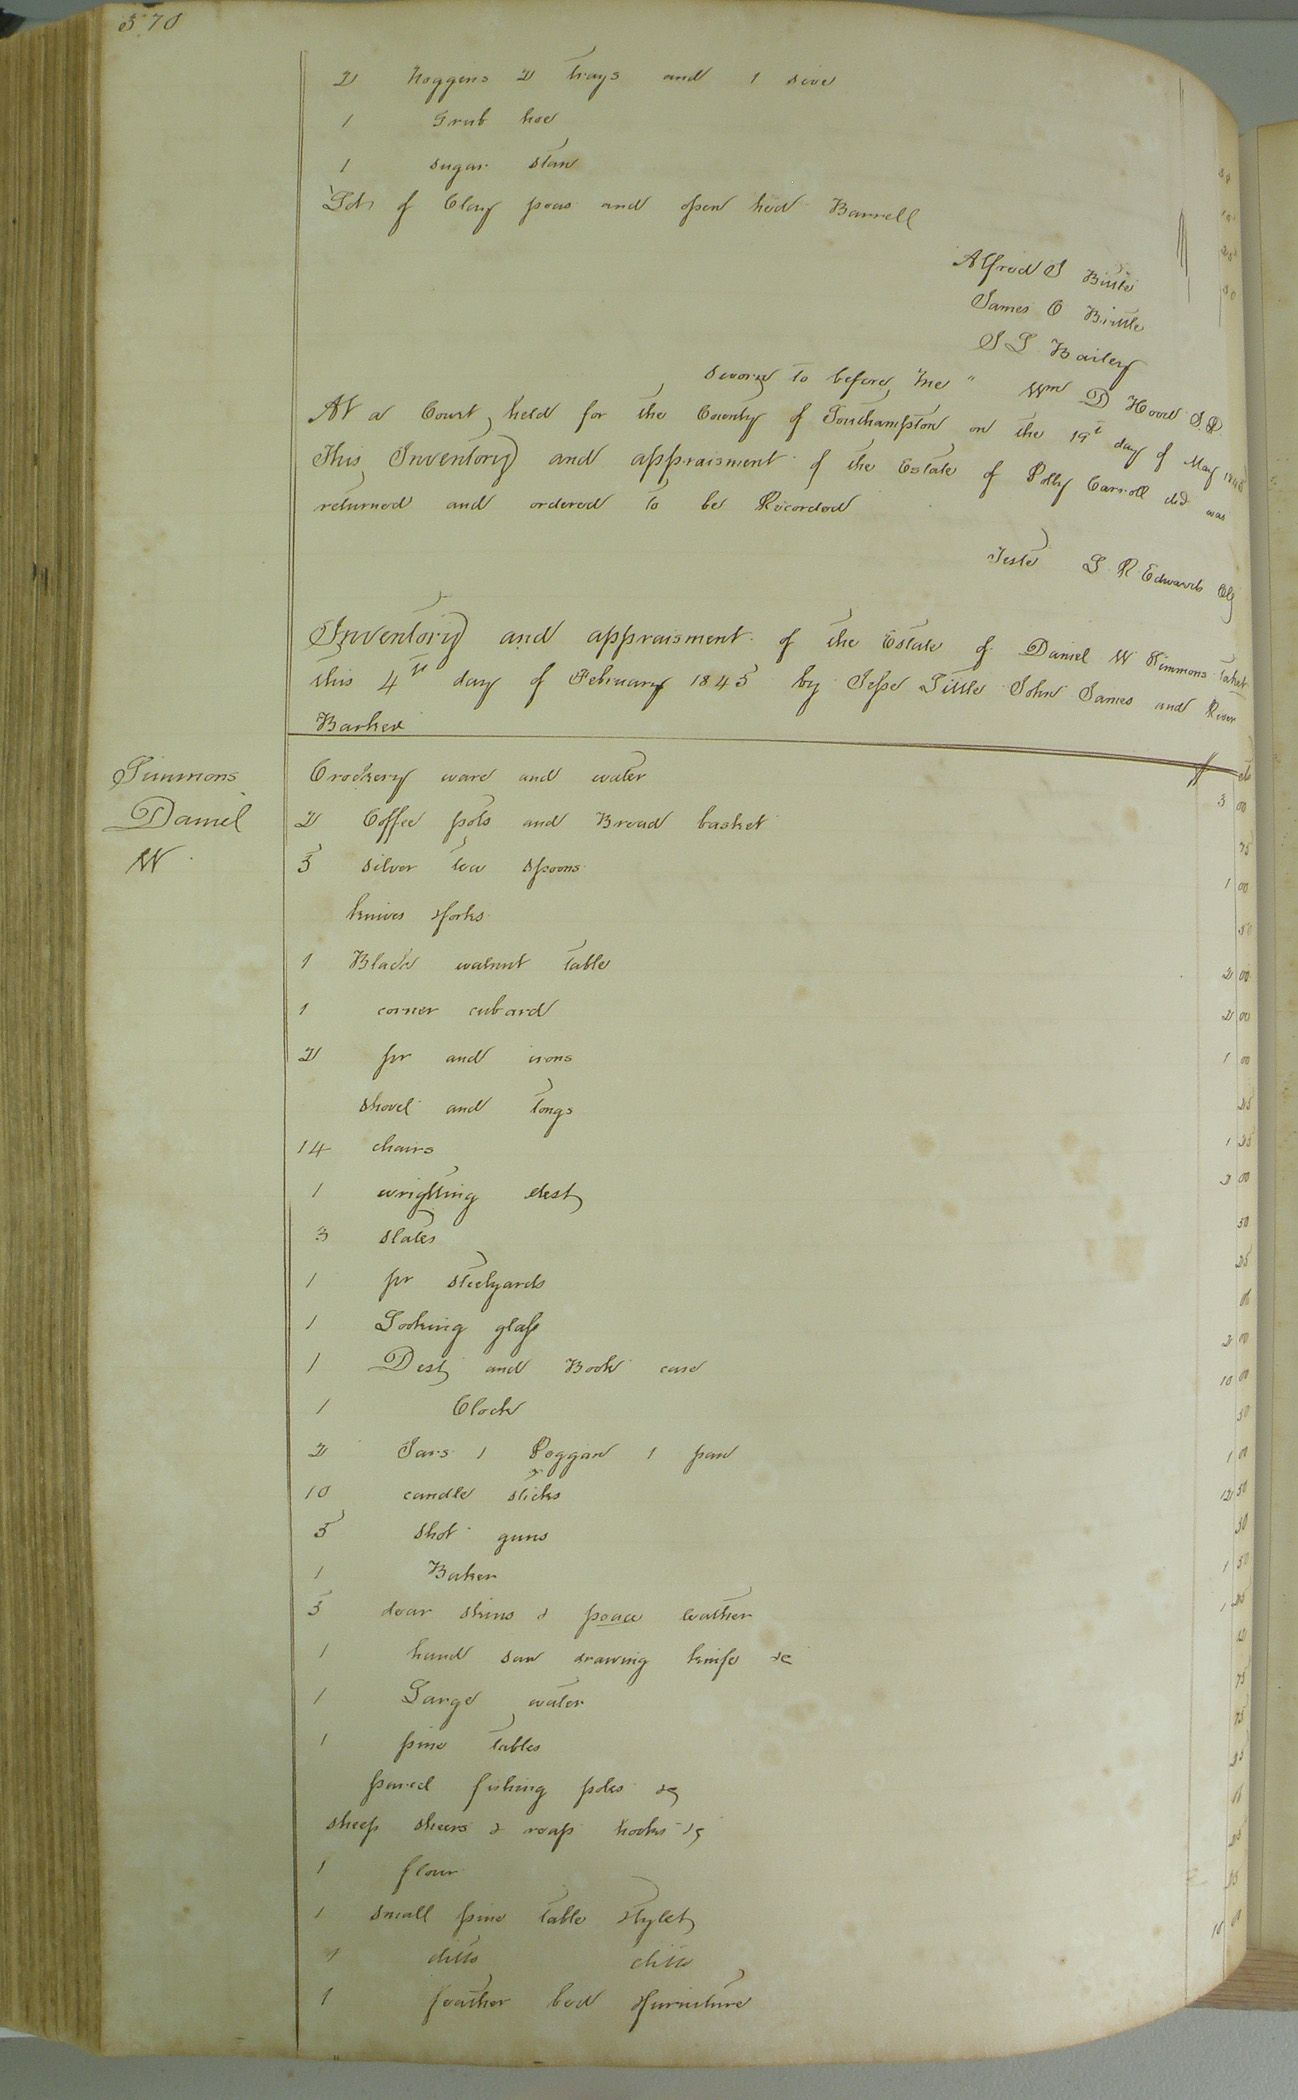 370
2 Noggins 2 trays and 1 sive
1 Grub hoe
1 sugar stan
Lot of Clay peas and open hed Barrell
Alfred S Bittle
James O Bittle
S L Bailey
sworn to before me Wm D Hood J.P.
At a Court held for the County of Southampton on the 19t day of May 1845
This Inventory and appraisment of the Estate of Polly Carroll decd was
returned and ordered to be Recorded
Teste L. R. Edwards Clk
Inventory and appraisment of the Estate of Daniel W Simmons taken
this 4th day of February 1845 by Jesse Little John James and
Barker
Simmons
Daniel
W
$ cts
Crockery ware and water 3 00
2 Coffee pots and Bread basket 75
5 silver tea spoons 1 00
knives & forks 50
1 Black walnut table 2 00
1 corner cubard 2 00
2 pr and irons 1 00
shovel and tongs 25
14 chairs 1 25
1 wrighting desk 2 00
3 slates 50
1 pr steelyards 25
1 Looking glass
1 Desk and Book case 2 00
1 Clock 10 00
2 Jars 1 Poggan 1 pan 50
10 candle sticks 1 00
5 shot guns 12 50
1 Baker 50
5 dear skins & peace leather 1 50
1 hand saw drawing knife &c 1 25
1 Large water
1 pine tables 75
parcel fishing poles &c 75
sheep sheers & reap hooks &c 25
1 flour
1 small pine table & tylet 25
1 ditto ditto 25
1 feather bed & furniture 10 00